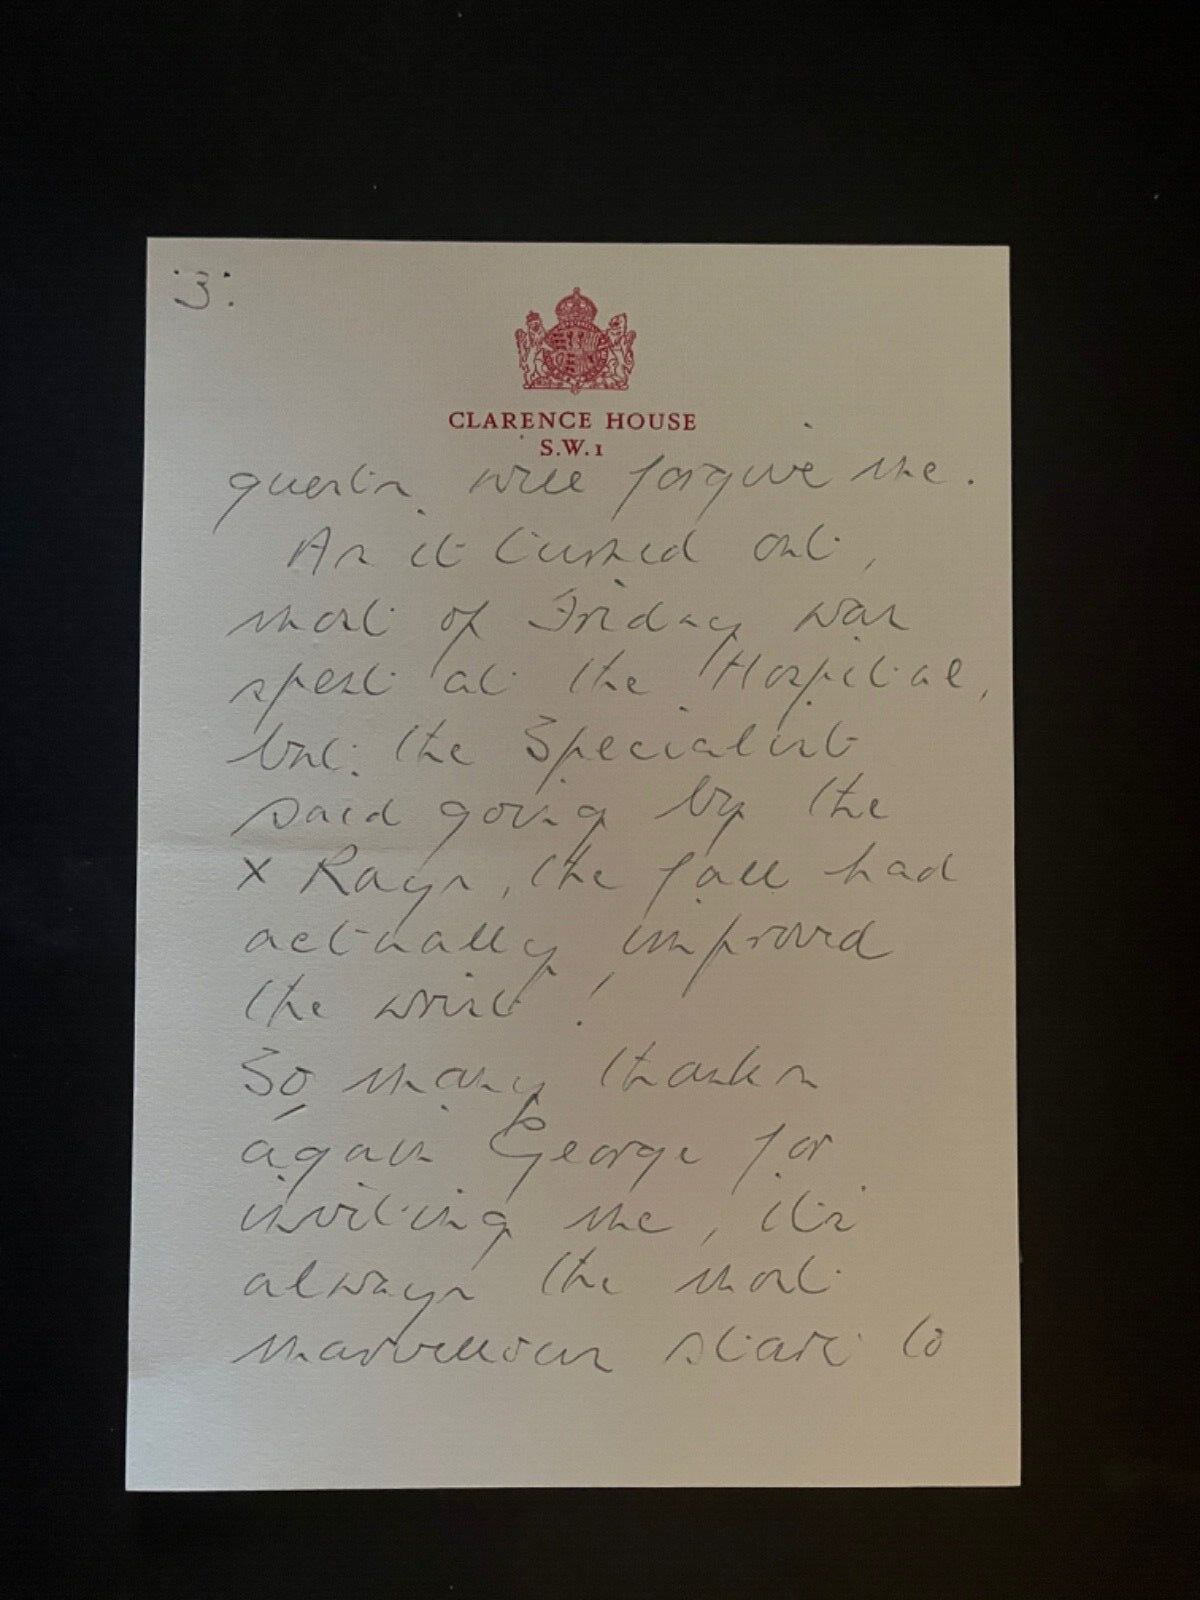 :3:
CLARENCE HOUSE
S.W.1
guests will forgive me.
As it turned out,
most of Friday was
spent at the Hospital,
but the Specialist
said going by the
X Rays, the fall had
actually improved
the wrist!
So many thanks
again George for
inviting me, it's
always the most
marvellous start to